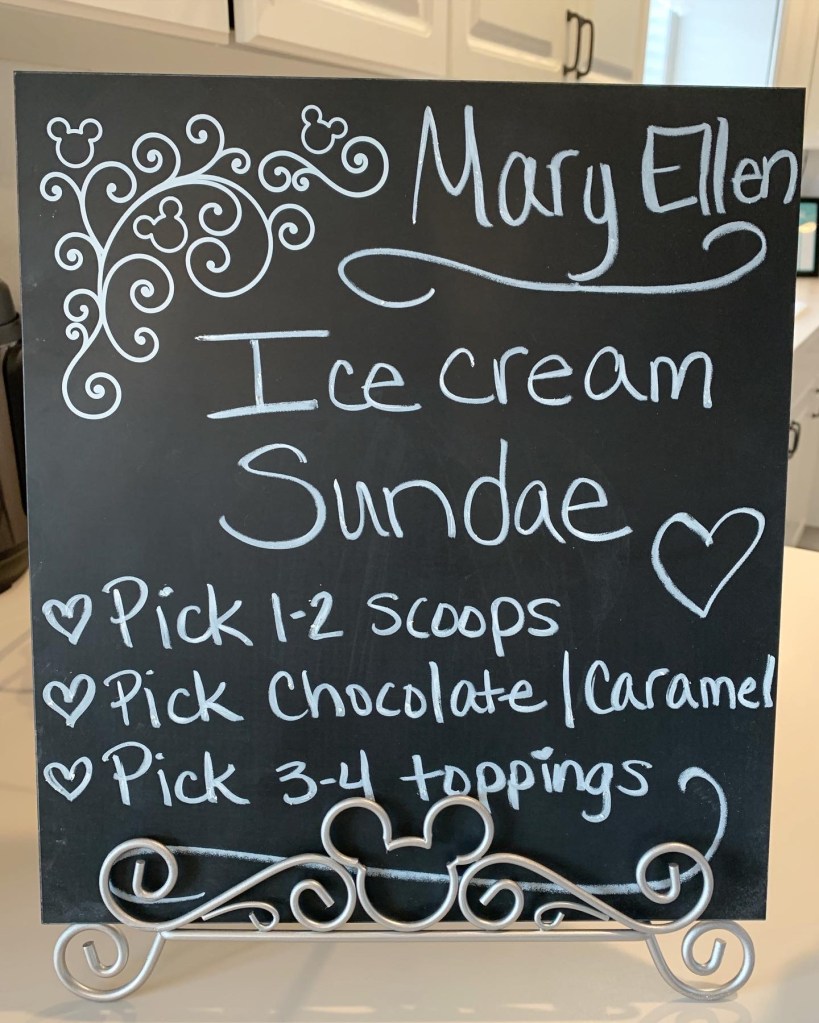 Mary Ellen
Ice cream
Sundae
Pick 1-2 scoops
Pick Chocolate/Caramel
Pick 3-4 toppings